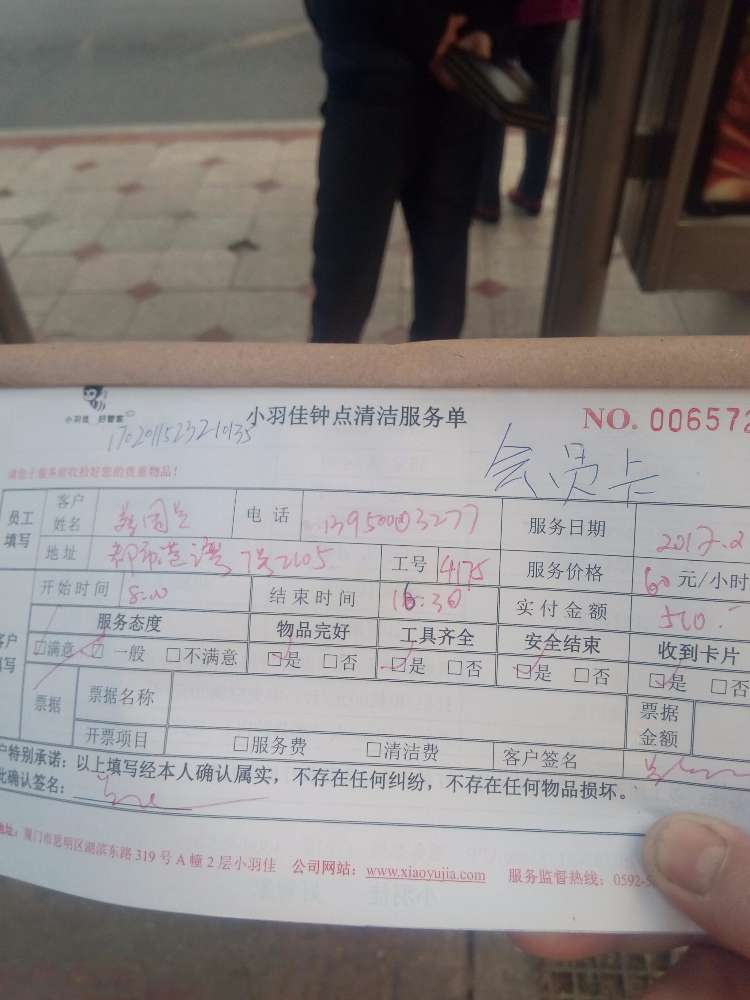 小羽佳 好管家
小羽佳钟点清洁服务单 NO. 006572
1702011523210135
会员卡
请您于服务前收拾好您的贵重物品!
员工填写 客户姓名 电话 13950003277 服务日期 2017.2
地址 都市港湾7号2105 工号 4175 服务价格 60元/小时
开始时间 8:00 结束时间 16:30 实付金额 510.
客户填写 服务态度 物品完好 工具齐全 安全结束 收到卡片
☑满意 ☑一般 □不满意 ☑是 □否 ☑是 □否 ☑是 □否 ☑是 □否
票据 票据名称 票据金额
开票项目 □服务费 □清洁费 客户签名
户特别承诺:以上填写经本人确认属实,不存在任何纠纷,不存在任何物品损坏。
此确认签名:
地址:厦门市思明区湖滨东路319号A幢2层小羽佳 公司网站:www.xiaoyujia.com 服务监督热线:0592-5